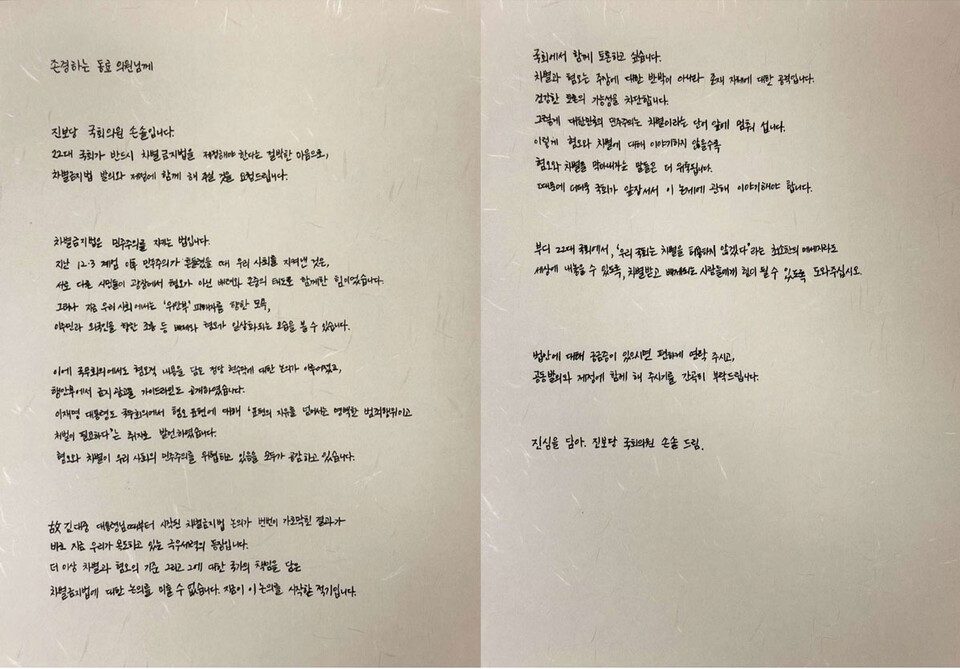 존경하는 동료 의원님께
진보당 국회의원 손솔입니다.
22대 국회가 반드시 차별금지법을 제정해야 한다는 절박한 마음으로,
차별금지법 발의와 제정에 함께 해 주실 것을 요청드립니다.
차별금지법은 민주주의를 지키는 법입니다.
지난 12·3 계엄 이후 민주주의가 흔들렸을 때 우리 사회를 지켜낸 것은,
서로 다른 시민들이 광장에서 혐오가 아닌 배려와 존중의 태도로 함께한 힘이었습니다.
그러나 지금 우리 사회에서는 '위안부' 피해자를 향한 모욕,
이주민과 외국인을 향한 조롱 등 배제와 혐오가 일상화되는 모습을 볼 수 있습니다.
이에 국무회의에서도 혐오적 내용을 담은 정당 현수막에 대한 논의가 이루어졌고,
행안부에서 금지광고물 가이드라인도 공개하였습니다.
이재명 대통령도 국무회의에서 혐오 표현에 대해 '표현의 자유를 넘어서는 명백한 범죄행위이고
처벌이 필요하다'는 취지로 발언하였습니다.
혐오와 차별이 우리 사회의 민주주의를 위협하고 있음을 모두가 공감하고 있습니다.
故 김대중 대통령님때부터 시작된 차별금지법 논의가 번번이 가로막힌 결과가
바로 지금 우리가 목도하고 있는 극우세력의 등장입니다.
더 이상 차별과 혐오의 기준 그리고 그에 대한 국가의 책임을 담은
차별금지법에 대한 논의를 미룰 수 없습니다. 지금이 이 논의를 시작할 적기입니다.
국회에서 함께 토론하고 싶습니다.
차별과 혐오는 주장에 대한 반박이 아니라 존재 자체에 대한 공격입니다.
건강한 토론의 가능성을 차단합니다.
그렇게 대한민국의 민주주의는 차별이라는 단어 앞에 멈춰 섭니다.
이렇게 혐오와 차별에 대해 이야기하지 않을수록
혐오와 차별을 막아내자는 말들은 더 위축됩니다.
때문에 더더욱 국회가 앞장서서 이 문제에 관해 이야기해야 합니다.
부디 22대 국회에서, '우리 국회는 차별을 허용하지 않겠다'라는 최소한의 메세지라도
세상에 내놓을 수 있도록, 차별받고 배제되는 사람들에게 힘이 될 수 있도록 도와주십시오.
법안에 대해 궁금증이 있으시면 편하게 연락 주시고,
공동발의와 제정에 함께 해 주시기를 간곡히 부탁드립니다.
진심을 담아. 진보당 국회의원 손솔 드림.